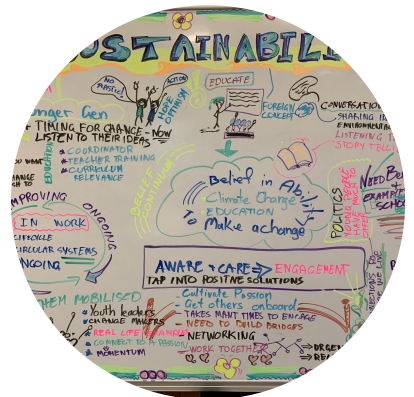 SUSTAINABILI
NO PLASTIC!
ACTION
HOPE
OPTIMISM
EDUCATE
FOREIGN
CONCEPT
CONVERSATION
SHARING I
ENVIRONMENTA
LISTENING T
STORY TELLI
nger Gen
TIMING FOR CHANGE - NOW
LISTEN TO THEIR IDEAS
EDUCATION
COORDINATOR
TEACHER TRAINING
CURRICULUM
RELEVANCE
BELIEF CONTINUUM
Belief in Ability
Climate Change
EDUCATION
To Make a change
POLITICS
YOUNG PEOPLE
HAVE MUCH TO
OFFER
NEED BE
EXAMPLE
SCHOOL
MPROVING
ONGOING
IN WORK
LIFECYCLE
CIRCULAR SYSTEMS
ONGOING
AWARE + CARE => ENGAGEMENT
TAP INTO POSITIVE SOLUTIONS
HEM MOBILISED
Youth leaders
CHANGE MAKERS
REAL LIFE
CONNECT TO A PASSION
MOMENTUM
- Cultivate Passion
- Get others onboard
- TAKES MANY TIMES TO ENGAGE
- NEED TO BUILD BRIDGES
NETWORKING
- WORK TOGETHER
URGEN
REA